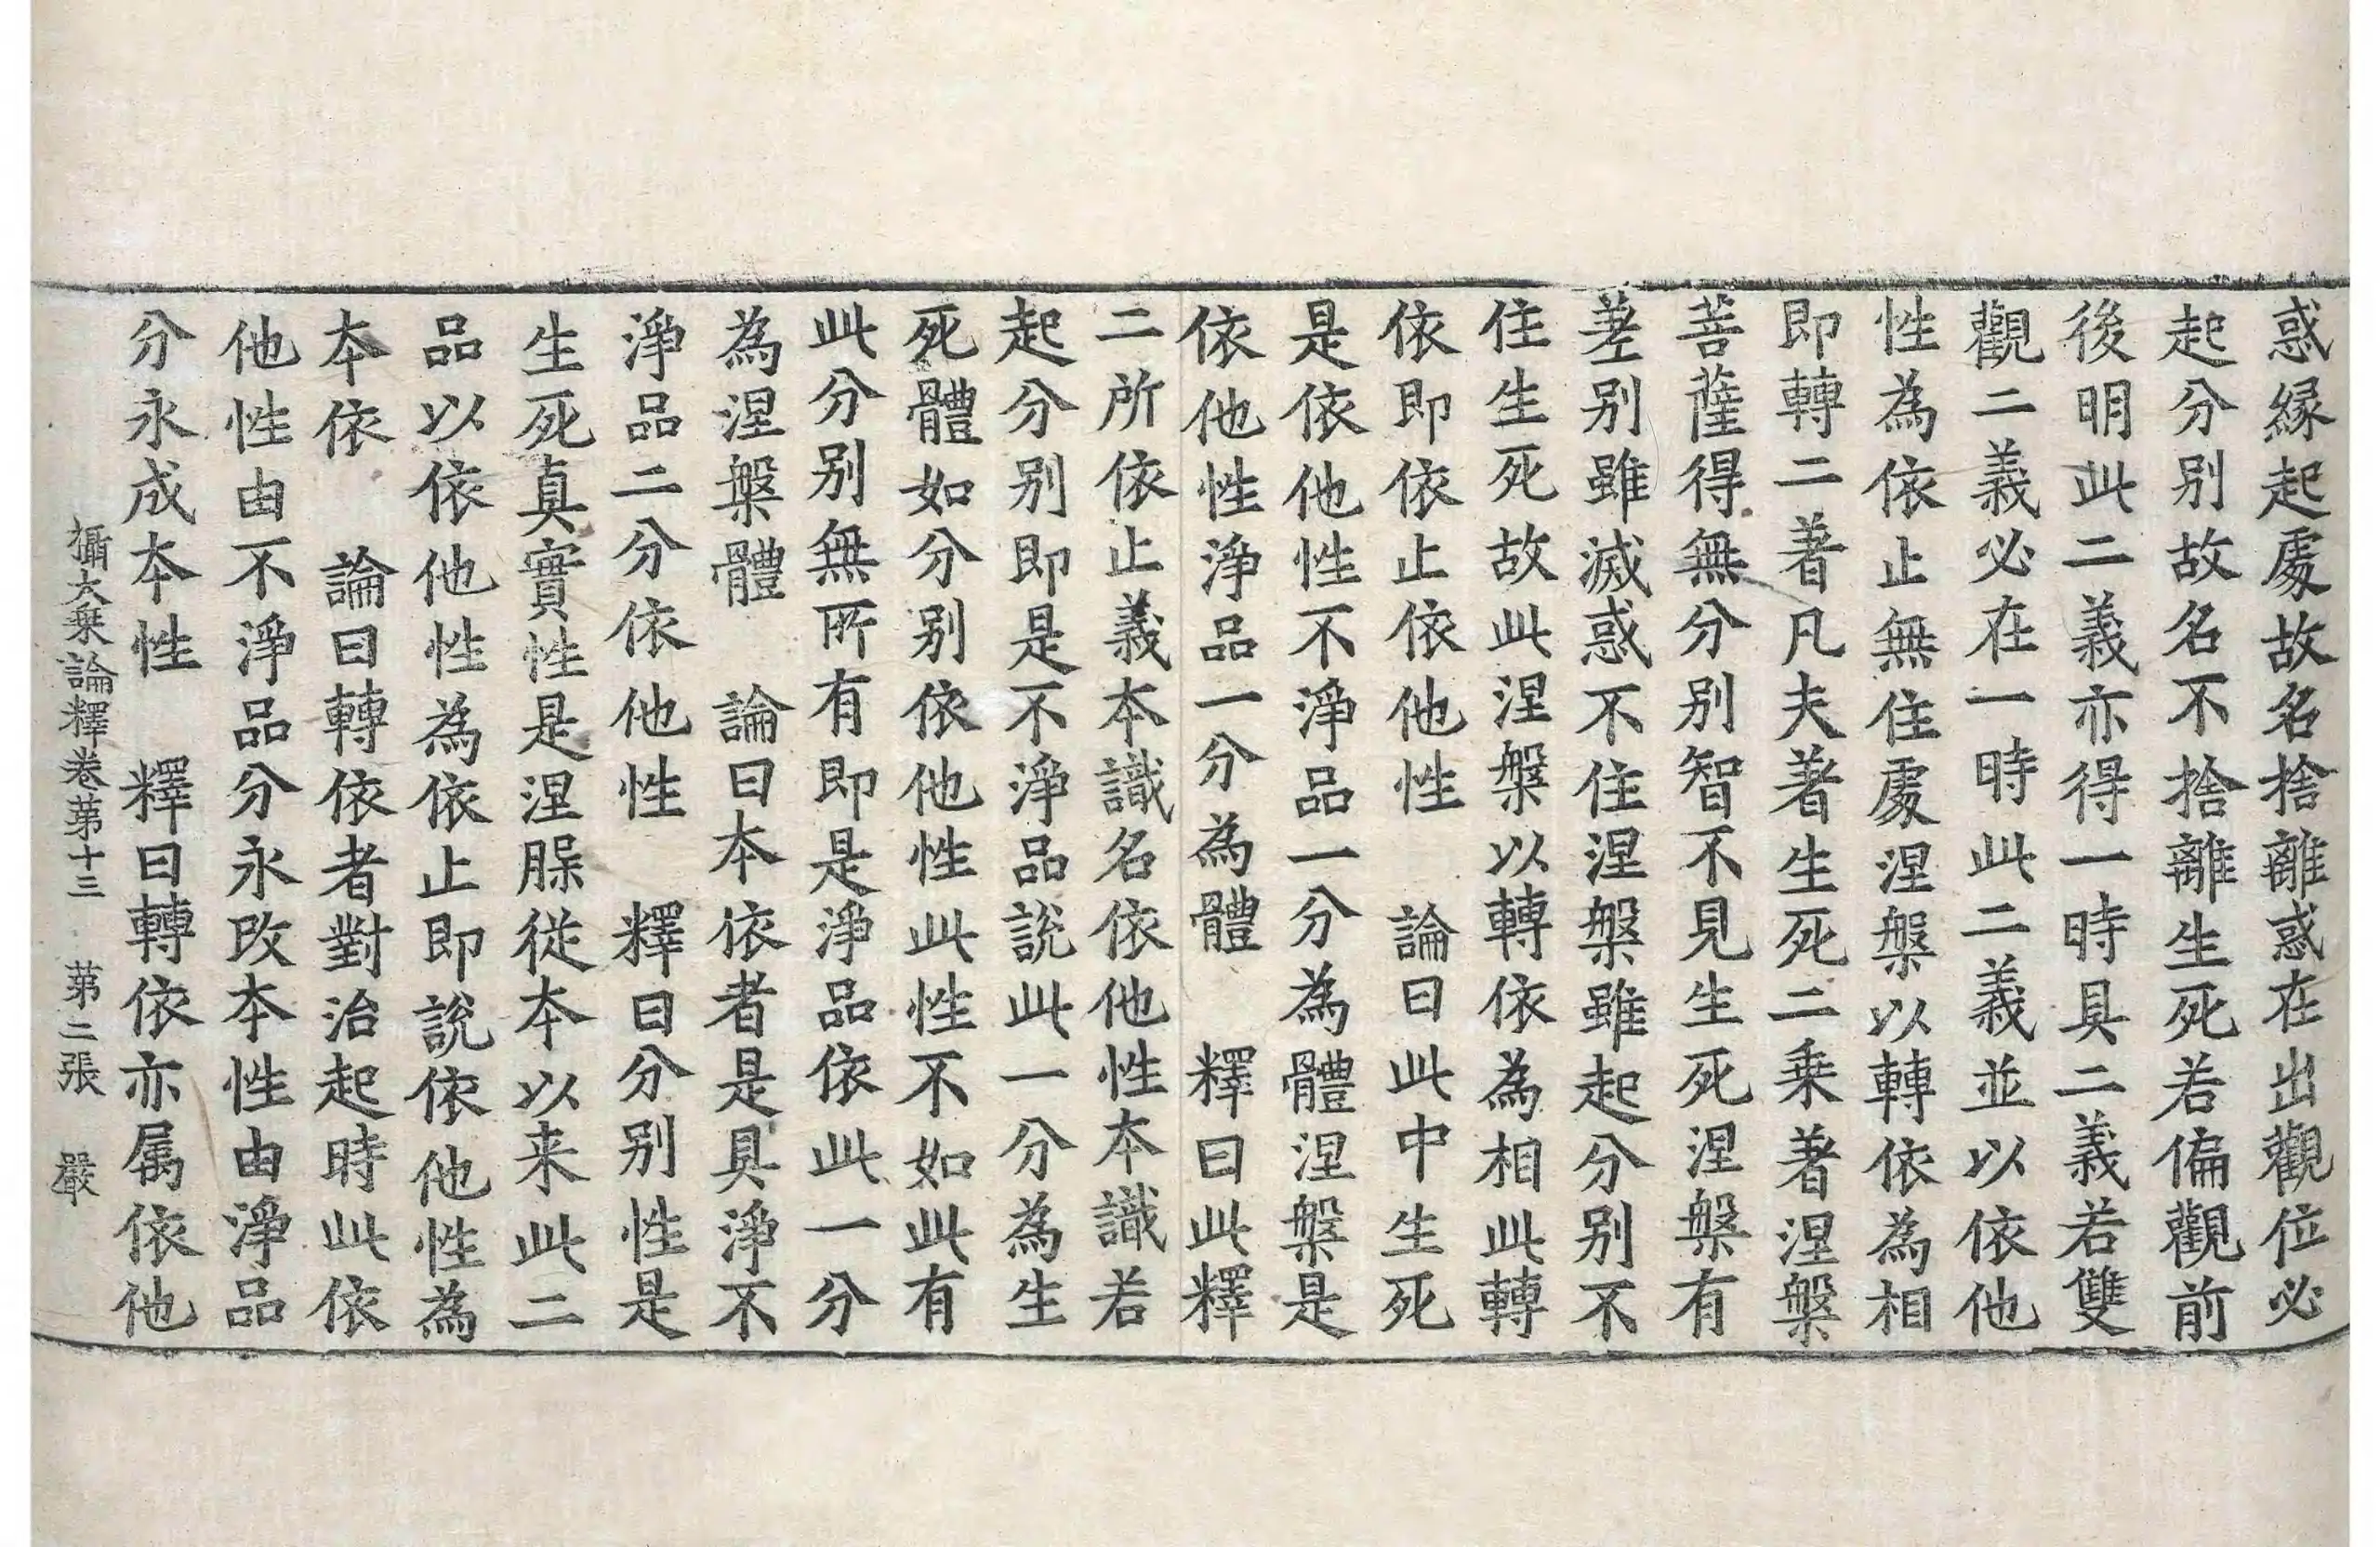 惑縁起處故名捨離惑在出觀位必
起分别故名不捨離生死若偏觀前
後明此二義亦得一時具二義若雙
觀二義必在一時此二義並以依他
性為依止無住處涅槃以轉依為相
即轉二著凡夫著生死二乗著涅槃
菩薩得無分别智不見生死涅槃有
差别雖滅惑不住涅槃雖起分别不
住生死故此涅槃以轉依為相此轉
依即依止依他性　論曰此中生死
是依他性不淨品一分為體涅槃是
依他性淨品一分為體　釋曰此釋
二所依止義本識名依他性本識若
起分别即是不淨品說此一分為生
死體如分别依他性此性不如此有
此分别無所有即是淨品依此一分
為涅槃體　論曰本依者是具淨不
淨品二分依他性　釋曰分别性是
生死真實性是涅槃從本以来此二
品以依他性為依止即說依他性為
本依　論曰轉依者對治起時此依
他性由不淨品分永改本性由淨品
分永成本性　釋曰轉依亦属依他
攝大乗論釋卷苐十三　苐二張　嚴